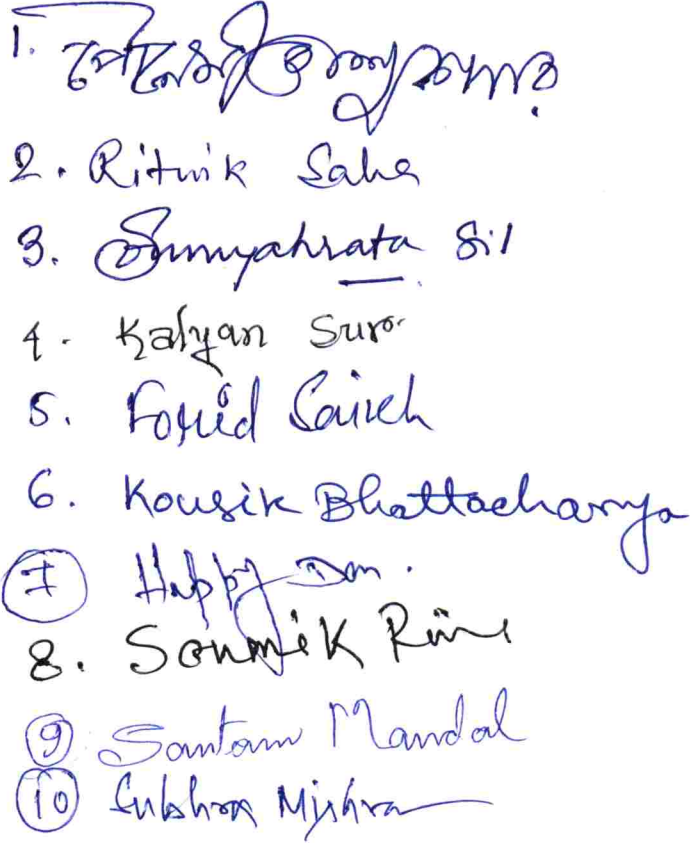 1.
2. Ritwik Saha
3. Sunnyabrata Sil
4. Kalyan Sur
5. Forid Saikh
6. Kousik Bhattacharya
7 Happy Den.
8. Soumik
9 Santam Mandal
10 Subhra Mishra